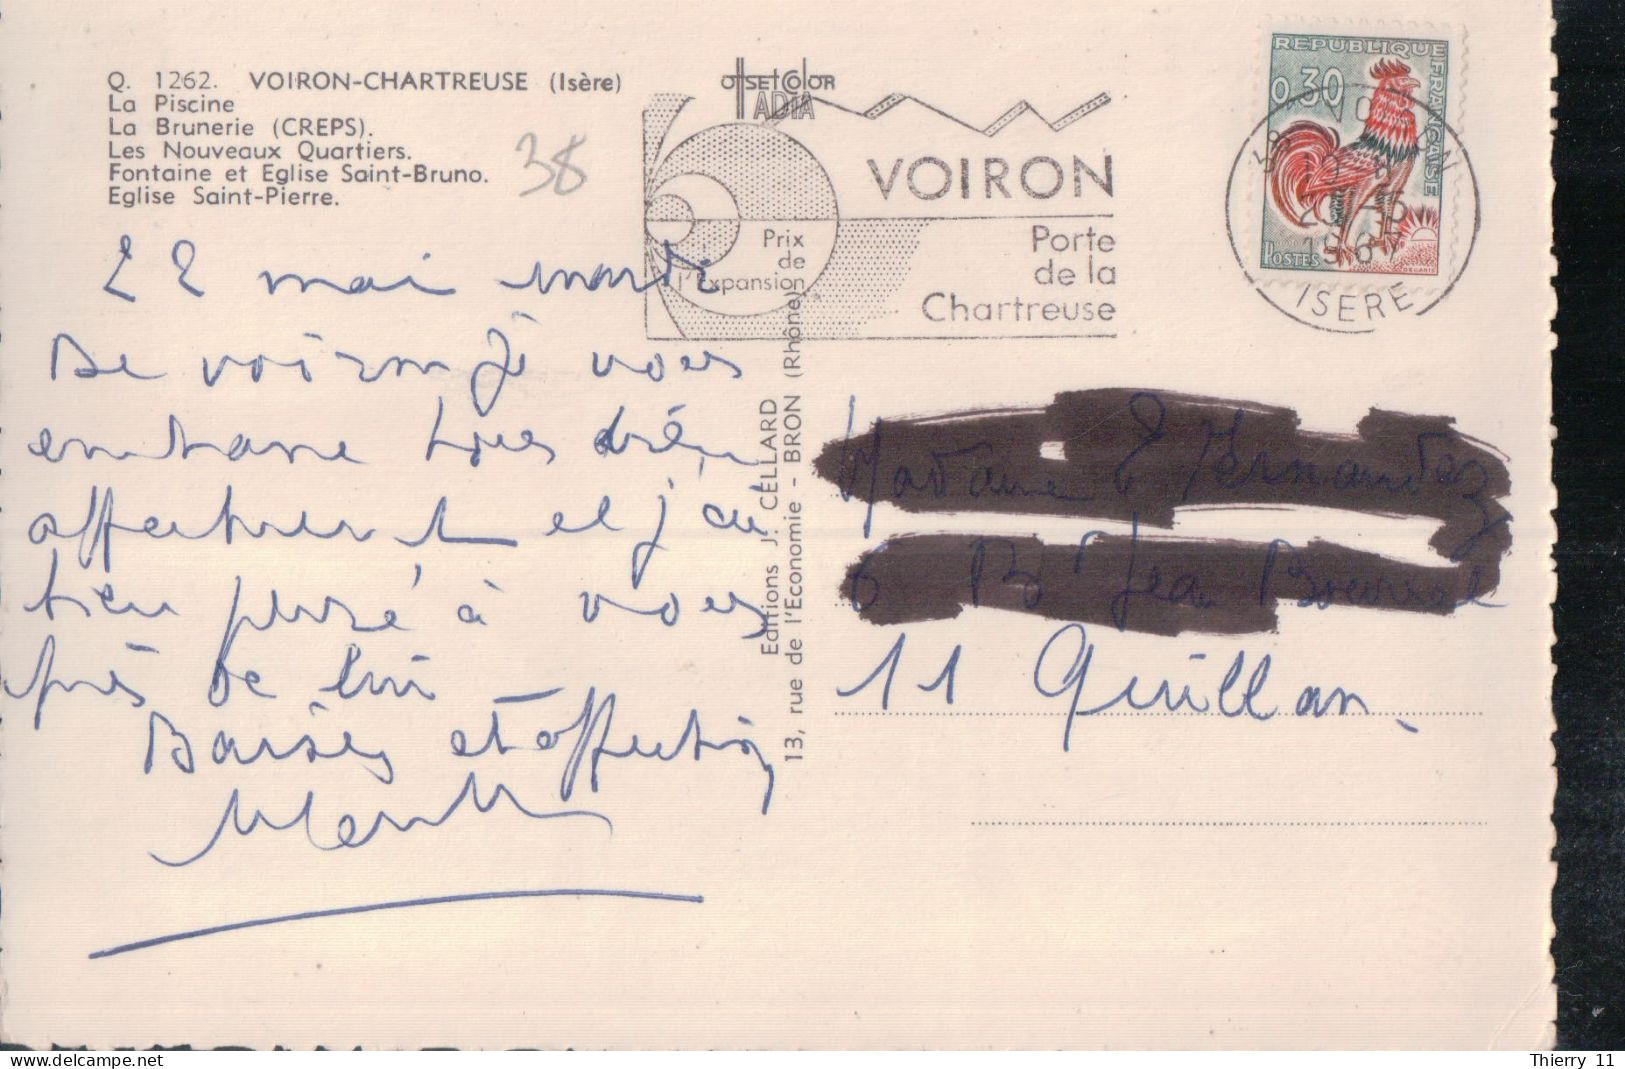 Q. 1262. VOIRON-CHARTREUSE (Isère)
La Piscine
La Brunerie (CREPS).
Les Nouveaux Quartiers.
Fontaine et Eglise Saint-Bruno.
Eglise Saint-Pierre.
38
OFFSETCOLOR
ADIA
VOIRON
Prix
de
l'Expansion
Porte
de la
Chartreuse
REPUBLIQUE FRANCAISE
0,30
POSTES
DECARIS
38 VOIRON
ISERE
22 mai mardi
De voiron je vous
embrasse tous bien
affectueus et j'ai
bien pensé à vous
près de lui
Baisers et affection
Editions J. CELLARD
13, rue de l'Economie - BRON (Rhône)
Madame E Fernandez
6 B Jean
11 Quillan.
Thierry 11